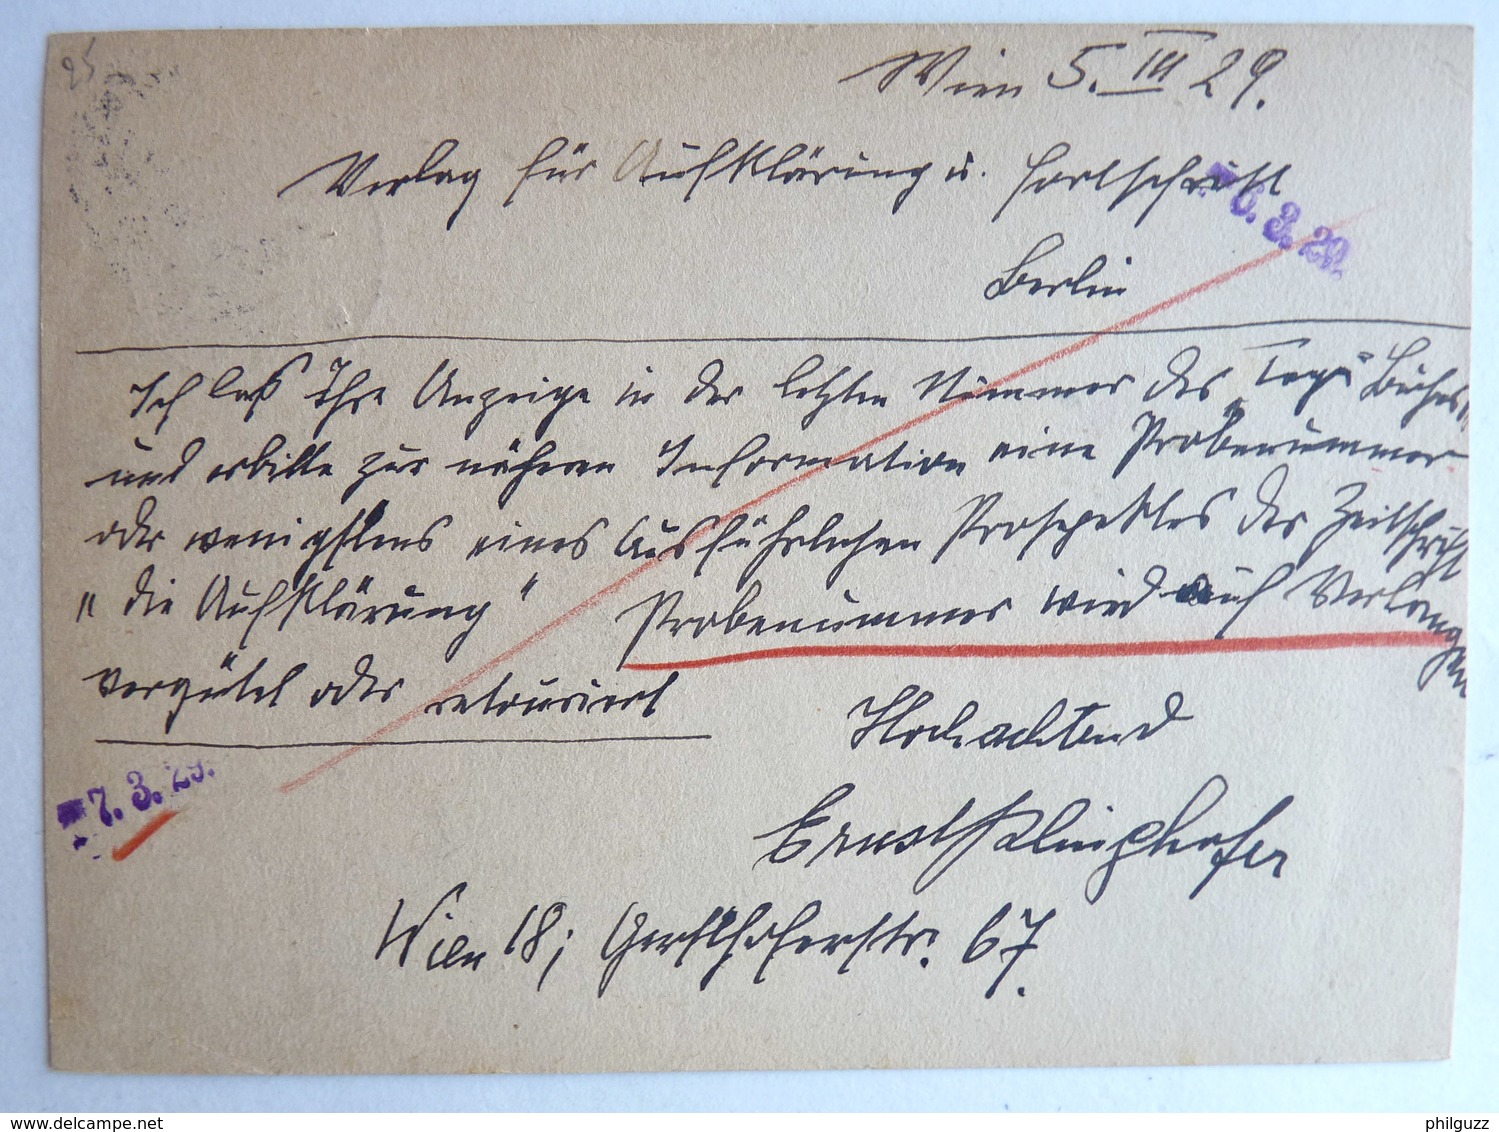 Wien 5. III 29.
Verlag für Aufklärung u. Fortschritt
6. 3. 29.
Berlin
Ich las Ihre Anzeige in der letzten Nummer des "Tage Buches"
und erbitte zur näheren Information eine Probenummer
oder wenigstens eines ausführlichen Prospektes der Zeitschrift
"die Aufklärung" Probenummer wird auf Verlangen
vergütet oder retourniert
Hochachtend
7. 3. 29.
Ernst Klinghofer
Wien 18; Gersthoferstr. 67.
philguzz